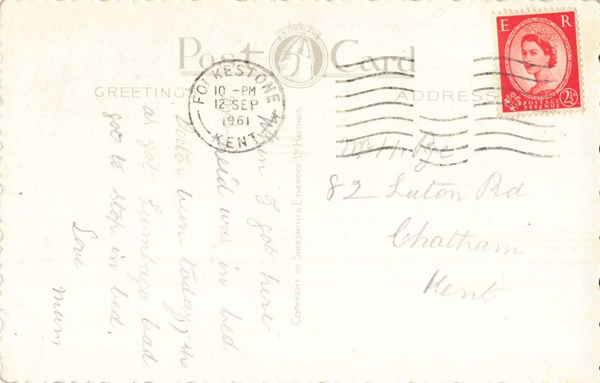 Post Card
GREETING
ADDRESS
E R
POSTAGE
REVENUE
2½
FOLKESTONE
10 - PM
12 SEP
1961
KENT
COPYRIGHT BY SHOESMITH & ETHERIDGE LD HASTINGS
When I got here
was in bed
Doctor been today, she
as got Lumbago bad
got to stop in bed.
Love
Mum
Pye
82 Luton Rd
Chatham
Kent